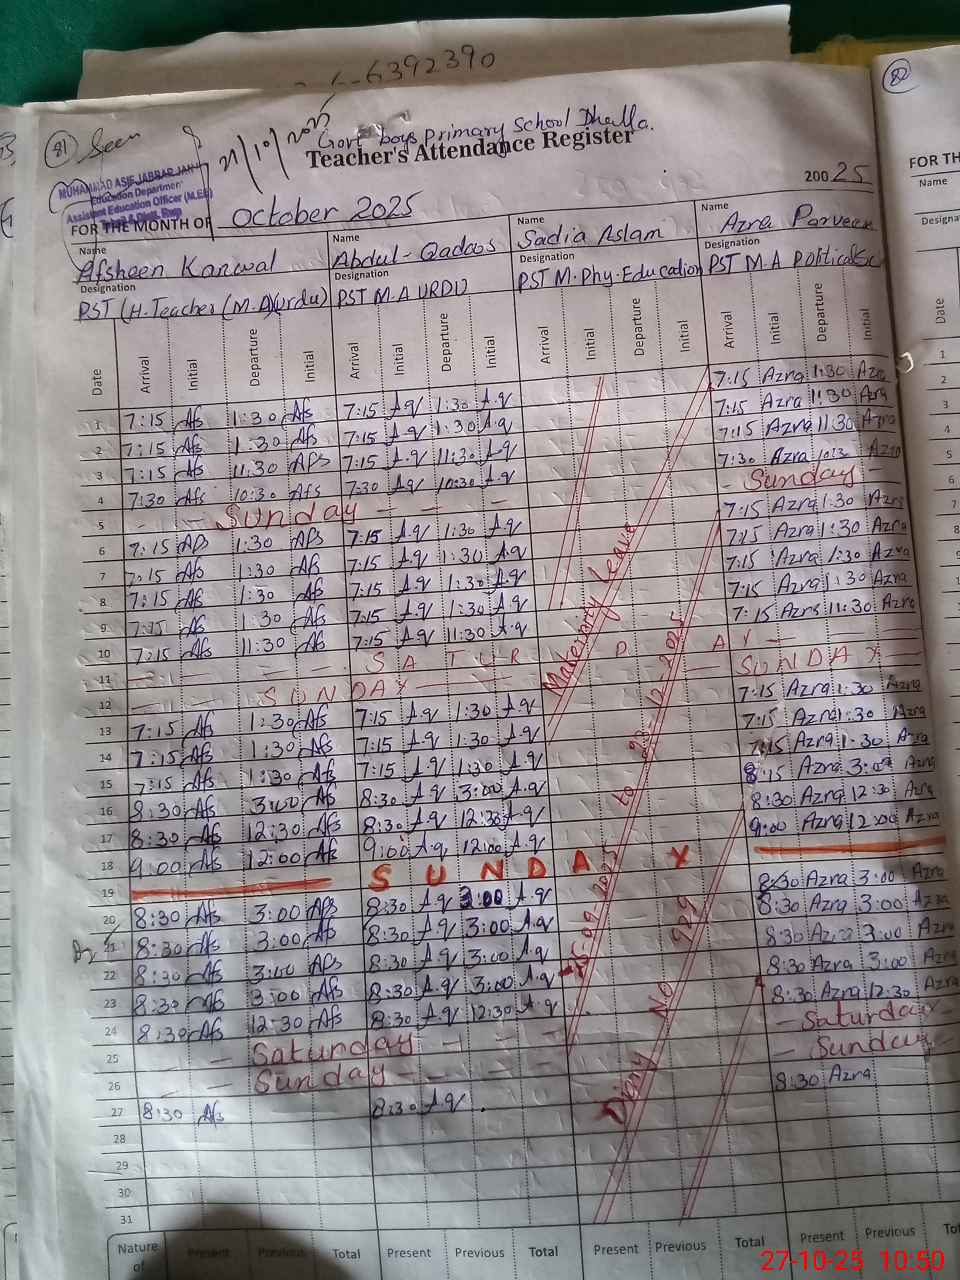 6392390
81
Seen
21/10/2025
Govt boys Primary School Dhalla.
Teacher's Attendance Register
82
MUHAMMAD ASIF JABBAR JAN
Education Department
Assistant Education Officer (M.EE)
200 25
FOR THE MONTH OF October 2025
FOR TH
Name Afsheen Kanwal Name Abdul-Qadoos Name Sadia Aslam Name Azra Parveen
Name
Designation PST (H.Teacher (M.A)(urdu) Designation PST M.A URDU Designation PST M.Phy.Education Designation PST M.A Political Sc
Designa
Date Arrival Initial Departure Initial Arrival Initial Departure Initial Arrival Initial Departure Initial Arrival Initial Departure Initial
Date
1 7:15 Afs 1:30 Afs 7:15 A.q 1:30 A.q 7:15 Azra 1:30 Azra
2 7:15 Afs 1:30 Afs 7:15 A.q 1:30 A.q 7:15 Azra 1:30 Azra
3 7:15 Afs 11:30 Afs 7:15 A.q 11:30 A.q 7:15 Azra 11:30 Azra
4 7:30 Afs 10:30 Afs 7:30 A.q 10:30 A.q 7:30 Azra Azra
5 Sunday Sunday
6 7:15 Afs 1:30 Afs 7:15 A.q 1:30 A.q 7:15 Azra 1:30 Azra
7 7:15 Afs 1:30 Afs 7:15 A.q 1:30 A.q 7:15 Azra 1:30 Azra
8 7:15 Afs 1:30 Afs 7:15 A.q 1:30 A.q 7:15 Azra 1:30 Azra
9 7:15 Afs 1:30 Afs 7:15 A.q 1:30 A.q 7:15 Azra 1:30 Azra
10 7:15 Afs 11:30 Afs 7:15 A.q 11:30 A.q 7:15 Azra 11:30 Azra
11 S A T U R D A Y
12 S U N D A Y SUNDAY
13 7:15 Afs 1:30 Afs 7:15 A.q 1:30 A.q 7:15 Azra 1:30 Azra
14 7:15 Afs 1:30 Afs 7:15 A.q 1:30 A.q 7:15 Azra 1:30 Azra
15 7:15 Afs 1:30 Afs 7:15 A.q 1:30 A.q 7:15 Azra 1:30 Azra
16 8:30 Afs 3:00 Afs 8:30 A.q 3:00 A.q 8:15 Azra 3:00 Azra
17 8:30 Afs 12:30 Afs 8:30 A.q 12:30 A.q 8:30 Azra 12:30 Azra
18 9:00 Afs 12:00 Afs 9:00 A.q 12:00 A.q 9:00 Azra 12:00 Azra
19 S U N D A Y
20 8:30 Afs 3:00 Afs 8:30 A.q 3:00 A.q 8:30 Azra 3:00 Azra
21 8:30 Afs 3:00 Afs 8:30 A.q 3:00 A.q 8:30 Azra 3:00 Azra
22 8:30 Afs 3:00 Afs 8:30 A.q 3:00 A.q 8:30 Azra 3:00 Azra
23 8:30 Afs 3:00 Afs 8:30 A.q 3:00 A.q 8:30 Azra 3:00 Azra
24 8:30 Afs 12:30 Afs 8:30 A.q 12:30 A.q 8:30 Azra 12:30 Azra
25 Saturday Saturday
26 Sunday Sunday
27 8:30 Afs 8:30 A.q 8:30 Azra
28
29
30
31
Maternity Leave
25-09-2025 to 23-12-2025
Diary No 989
Nature of Present Previous Total Present Previous Total Present Previous Total Present Previous
27-10-25 10:50